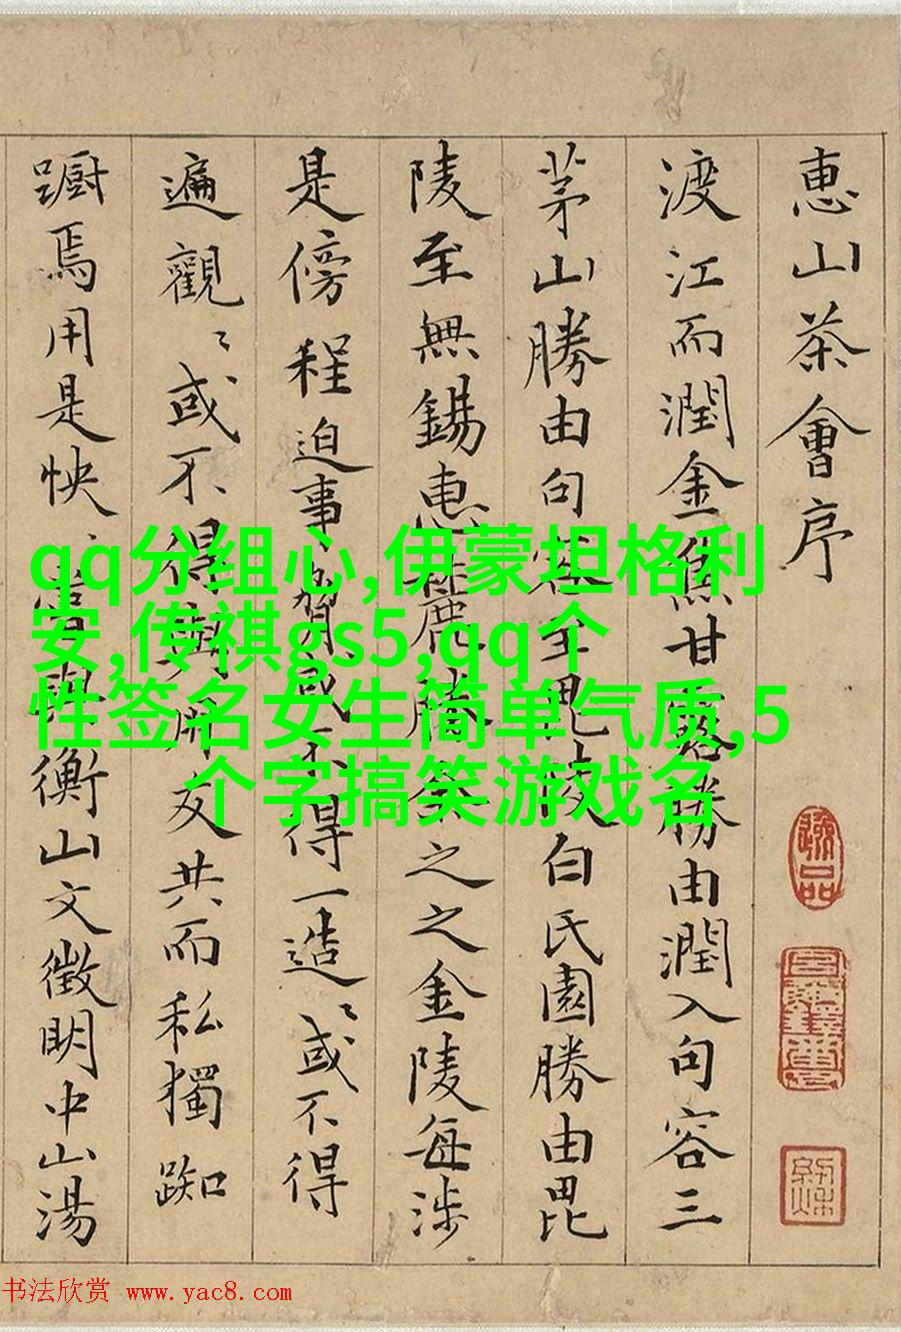 惠山茶會序
渡江而潤金焦甘露勝由潤入句容三
茅山勝由句容至毘陵白氏園勝由毘
陵至無錫惠麓勝余之之金陵每涉
是傍程迫事勢或不得一造〻或不得
遍觀〻或不得與所友共而私獨踟
蹰焉用是怏〻嘗與衡山文徵明中山湯
qq分组心,伊蒙坦格利
安,传祺gs5,qq个
性签名女生简单气质,5
个字搞笑游戏名
书法欣赏 www.yac8.com